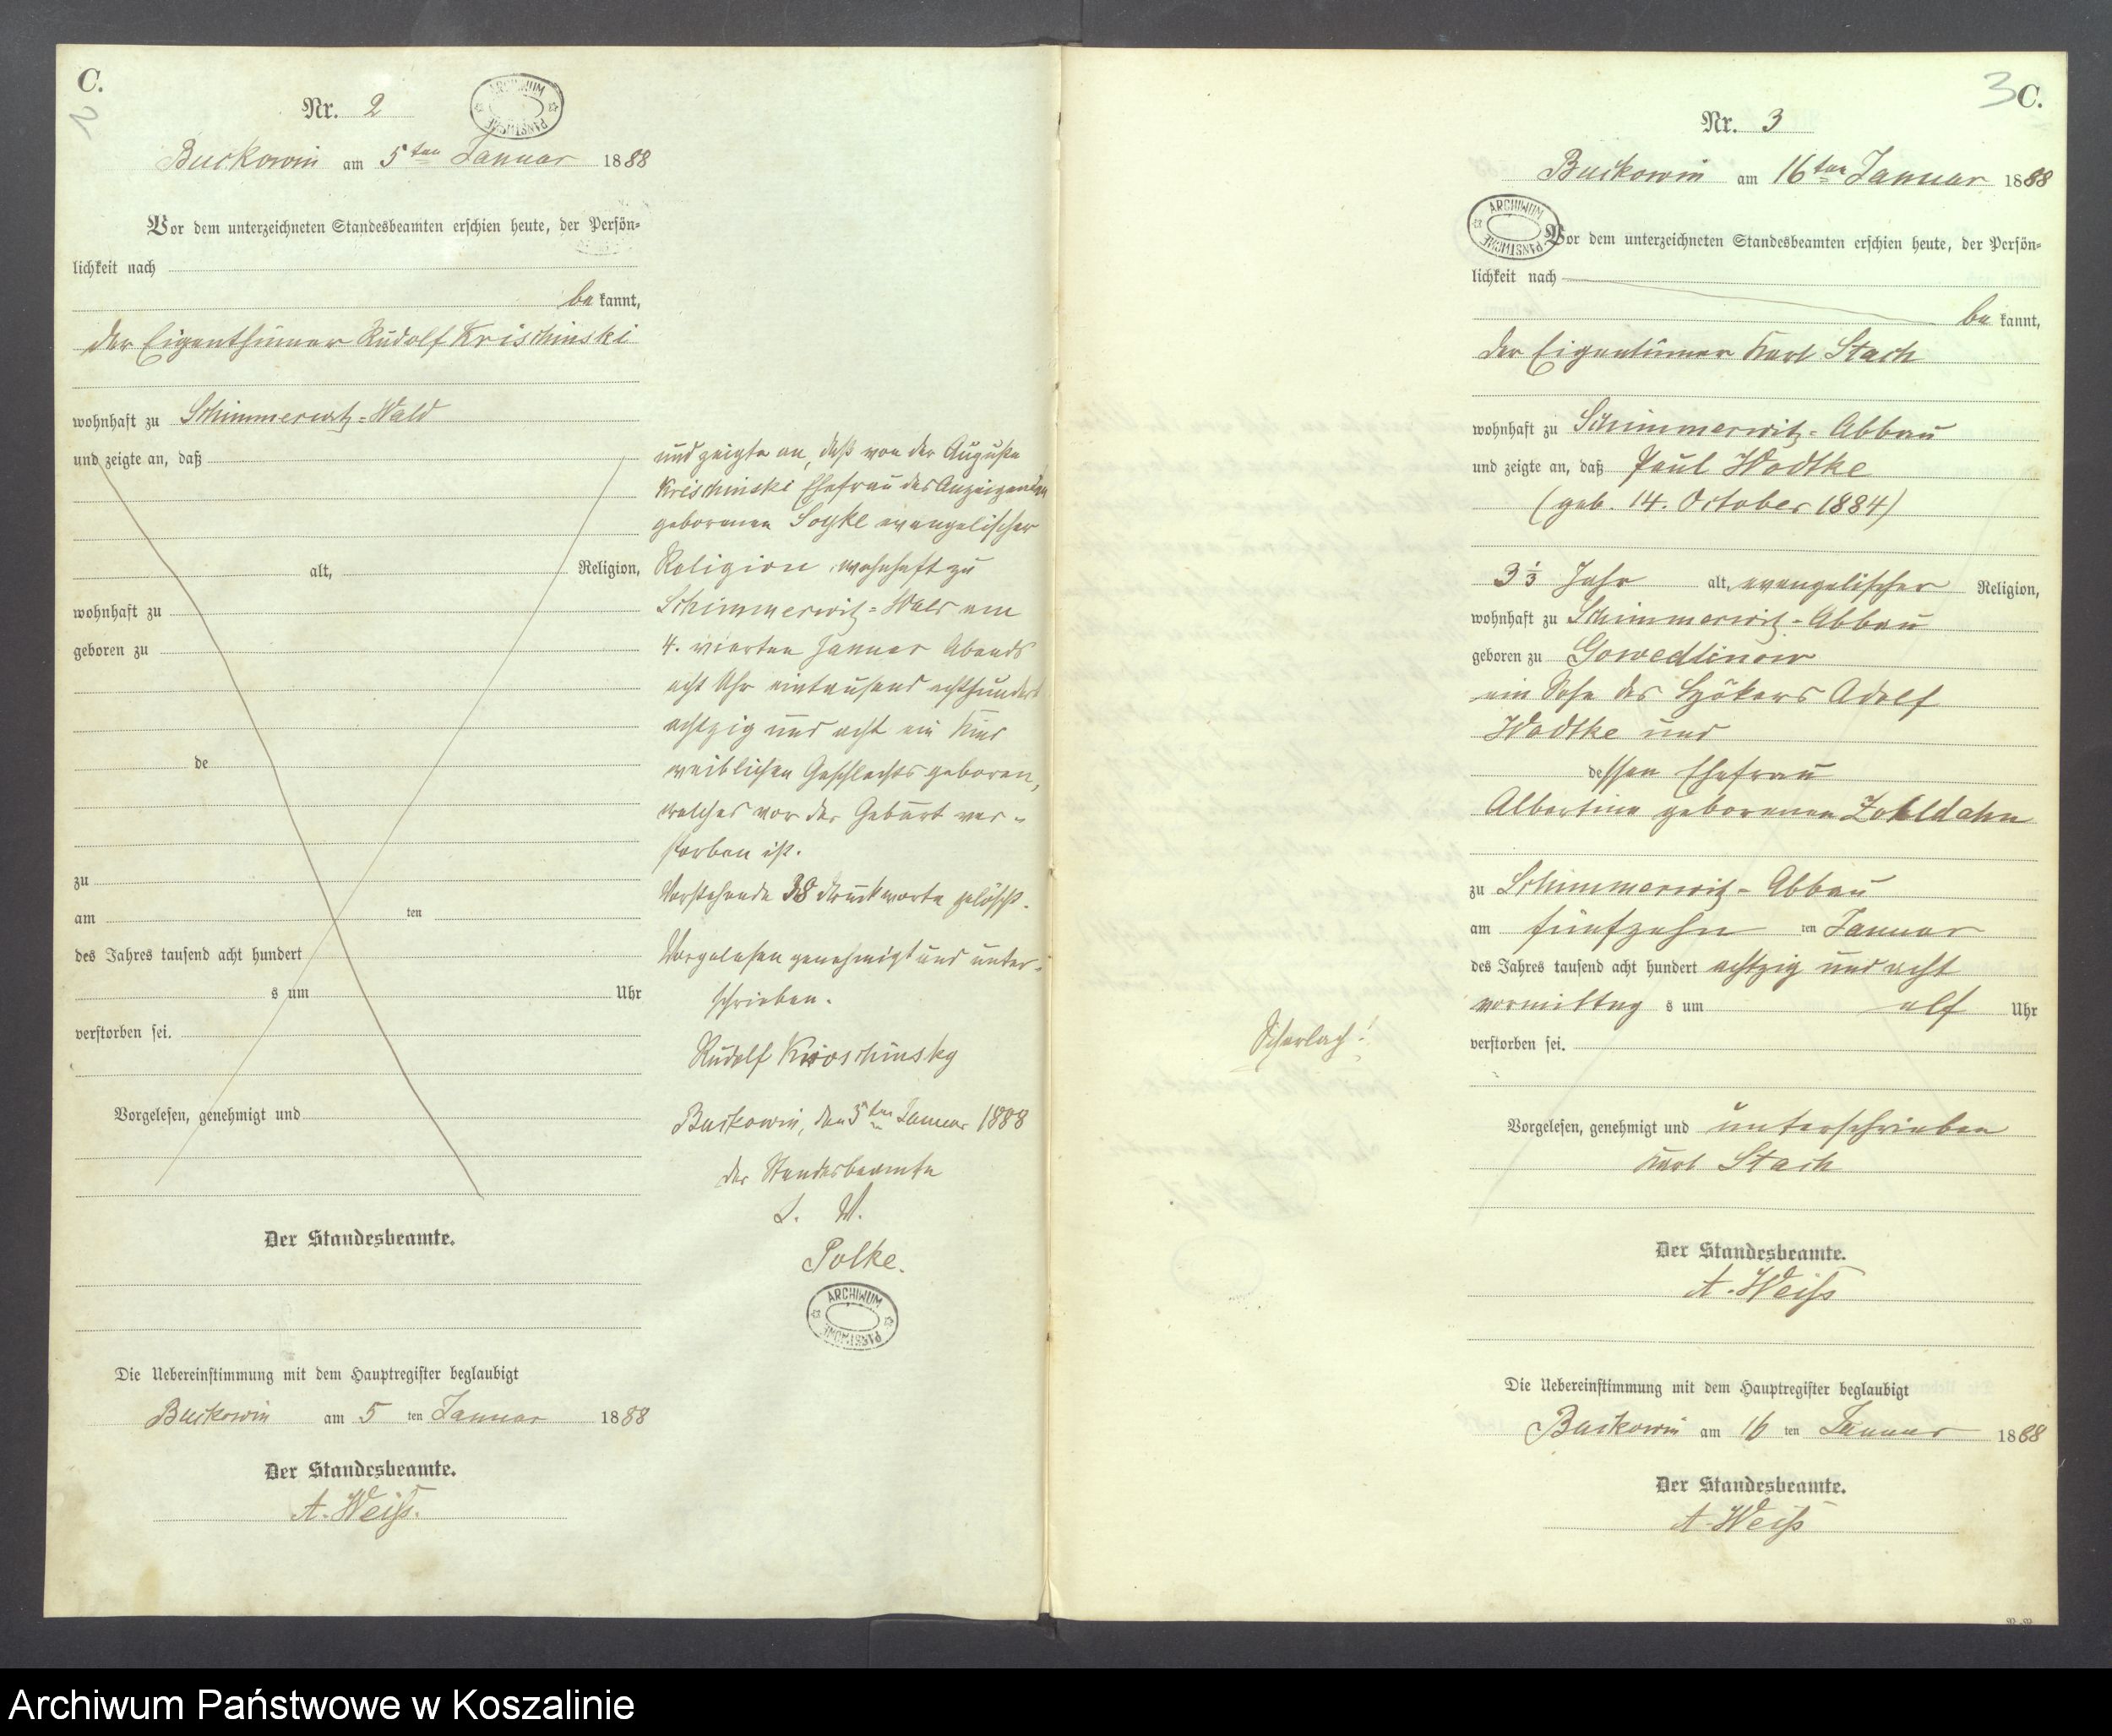 C.
2
Nr. 2
ARCHIWUM PAŃSTWOWE
Buckowin am 5ten Januar 1888
Vor dem unterzeichneten Standesbeamten erschien heute, der Persön-
lichkeit nach
be kannt,
der Eigenthümer Rudolf Krischinski
wohnhaft zu Schimmerwitz-Wald
und zeigte an, daß
alt, Religion,
wohnhaft zu
geboren zu
de
zu
am ten
des Jahres tausend acht hundert
s um Uhr
verstorben sei.
Vorgelesen, genehmigt und
Der Standesbeamte.
Die Uebereinstimmung mit dem Hauptregister beglaubigt
Buckowin am 5 ten Januar 1888
Der Standesbeamte.
A. Weiß.
und zeigte an, daß von der Auguste
Krischinski Ehefrau des Anzeigenden
geborenen Soyke evangelischer
Religion, wohnhaft zu
Schimmerwitz-Wald am
4. vierten Januar Abends
acht Uhr eintausend achthundert
achtzig und acht ein Kind
weiblichen Geschlechts geboren,
welches vor der Geburt ver-
storben ist.
Vorstehende 38 Druckworte gelöscht.
Vorgelesen genehmigt und unter-
schrieben.
Rudolf Krioschinsky
Buckowin, den 5ten Januar 1888
der Standesbeamte
Polke.
ARCHIWUM PAŃSTWOWE
3 C.
Nr. 3
Buckowin am 16ten Januar 1888
ARCHIWUM PAŃSTWOWE
Vor dem unterzeichneten Standesbeamten erschien heute, der Persön-
lichkeit nach
be kannt,
der Eigentümer Karl Stach
wohnhaft zu Schimmerwitz-Abbau
und zeigte an, daß Paul Wodtke
(geb. 14. October 1884)
3 1/3 Jahr alt, evangelischer Religion,
wohnhaft zu Schimmerwitz-Abbau
geboren zu Gowedlinow
ein Sohn des Hökers Adolf
Wodtke und
dessen Ehefrau
Albertine geborenen
zu Schimmerwitz-Abbau
am fünfzehn ten Januar
des Jahres tausend acht hundert achtzig und acht
vormittag s um elf Uhr
verstorben sei.
Scharlach!
Vorgelesen, genehmigt und unterschrieben
Karl Stach
Der Standesbeamte.
A. Weiß
Die Uebereinstimmung mit dem Hauptregister beglaubigt
Buckowin am 16 ten Januar 1888
Der Standesbeamte.
A. Weiß
Archiwum Państwowe w Koszalinie